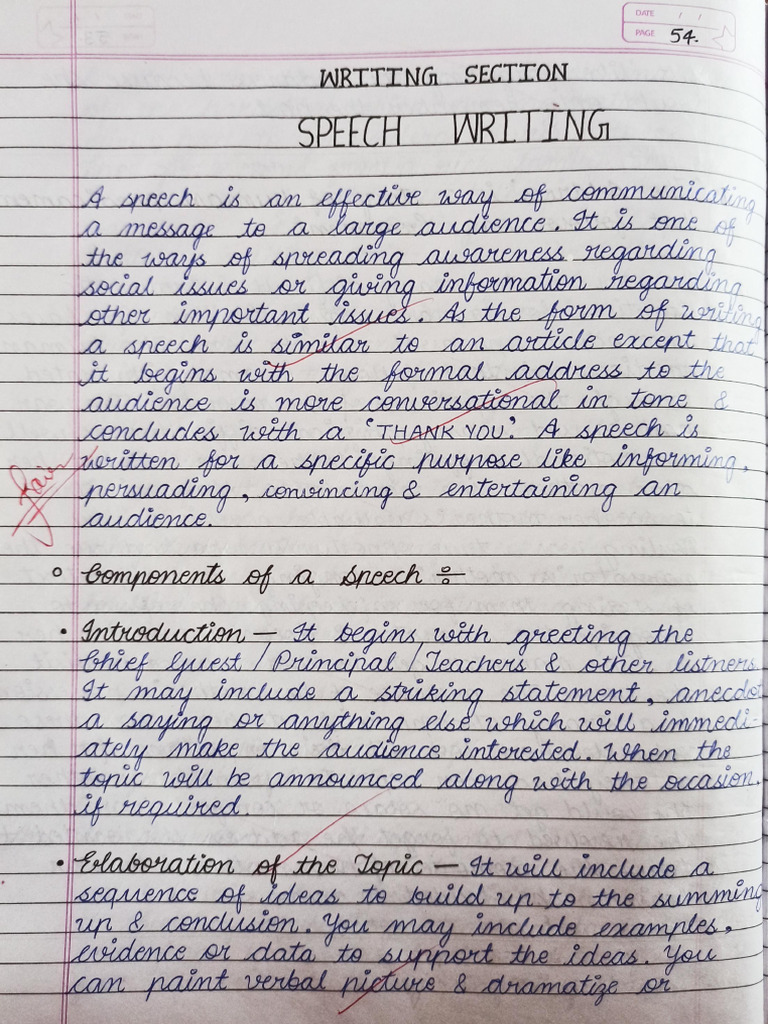 DATE / /
PAGE 54.
WRITING SECTION
SPEECH WRITING
A speech is an effective way of communicating
a message to a large audience. It is one of
the ways of spreading awareness regarding
social issues or giving information regarding
other important issues. As the form of writing
a speech is similar to an article except that
it begins with the formal address to the
audience is more conversational in tone &
concludes with a 'THANK YOU'. A speech is
written for a specific purpose like informing,
persuading, convincing & entertaining an
audience.
Components of a speech ÷
• Introduction — It begins with greeting the
Chief Guest / Principal / Teachers & other listners.
It may include a striking statement, anecdot
a saying or anything else which will immedi-
ately make the audience interested. When the
topic will be announced along with the occasion,
if required.
• Elaboration of the Topic — It will include a
sequence of ideas to build up to the summing
up & conclusion. You may include examples,
evidence or data to support the ideas. You
can paint verbal picture & dramatize or